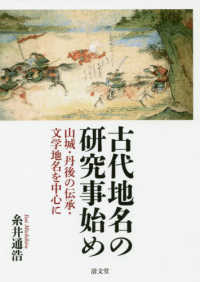 古代地名の
研究事始め
山城・丹後の伝承・
文学地名を中心に
糸井通浩
Itoi Michihiro
清文堂